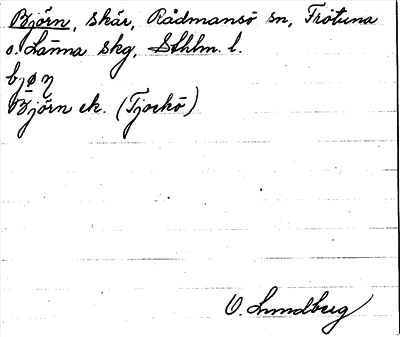 Björn, skär, Rådmansö sn, Frötuna
o. Länna skg, Sthlm. l.
bjøɳ
Björn ek. (Tjockö)
O. Lundberg